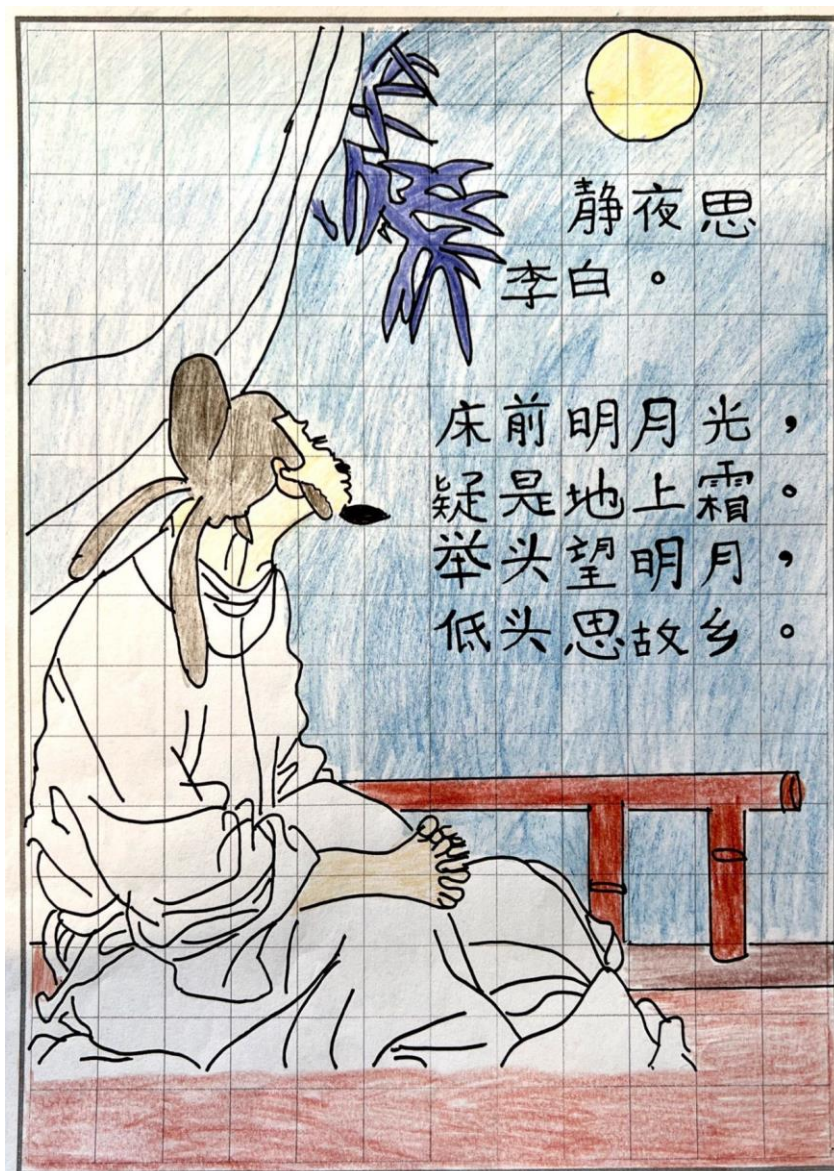 静夜思
李白。
床前明月光，
疑是地上霜。
举头望明月，
低头思故乡。